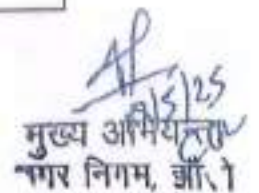 9/5/25
मुख्य अभियन्ता
नगर निगम,